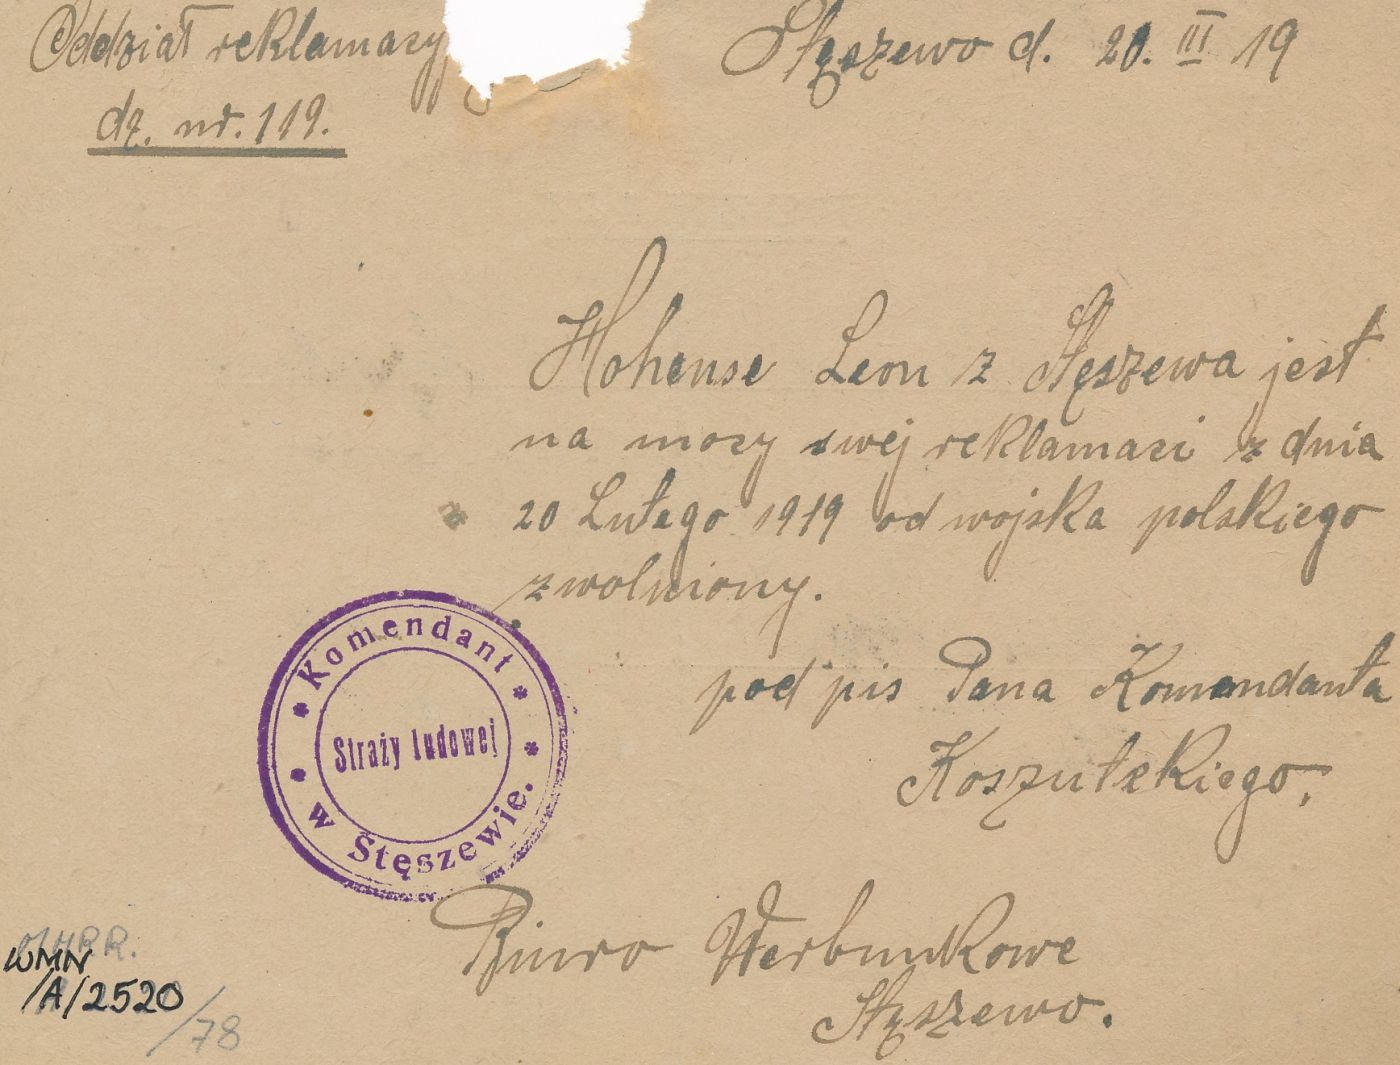 Oddział reklamacy
Stęszewo d. 20. III 19
dz. nr. 119.
Hohense Leon z Stęszewa jest
na mocy swej reklamaci z dnia
20 Lutego 1919 od wojska polskiego
zwolniony.
podpis Pana Komandanta
Koszutzkiego.
Komendant
Straży ludowej
w Stęszewie.
Biuro Werbunkowe
Stęszewo.
WMN
/A/2520
/78